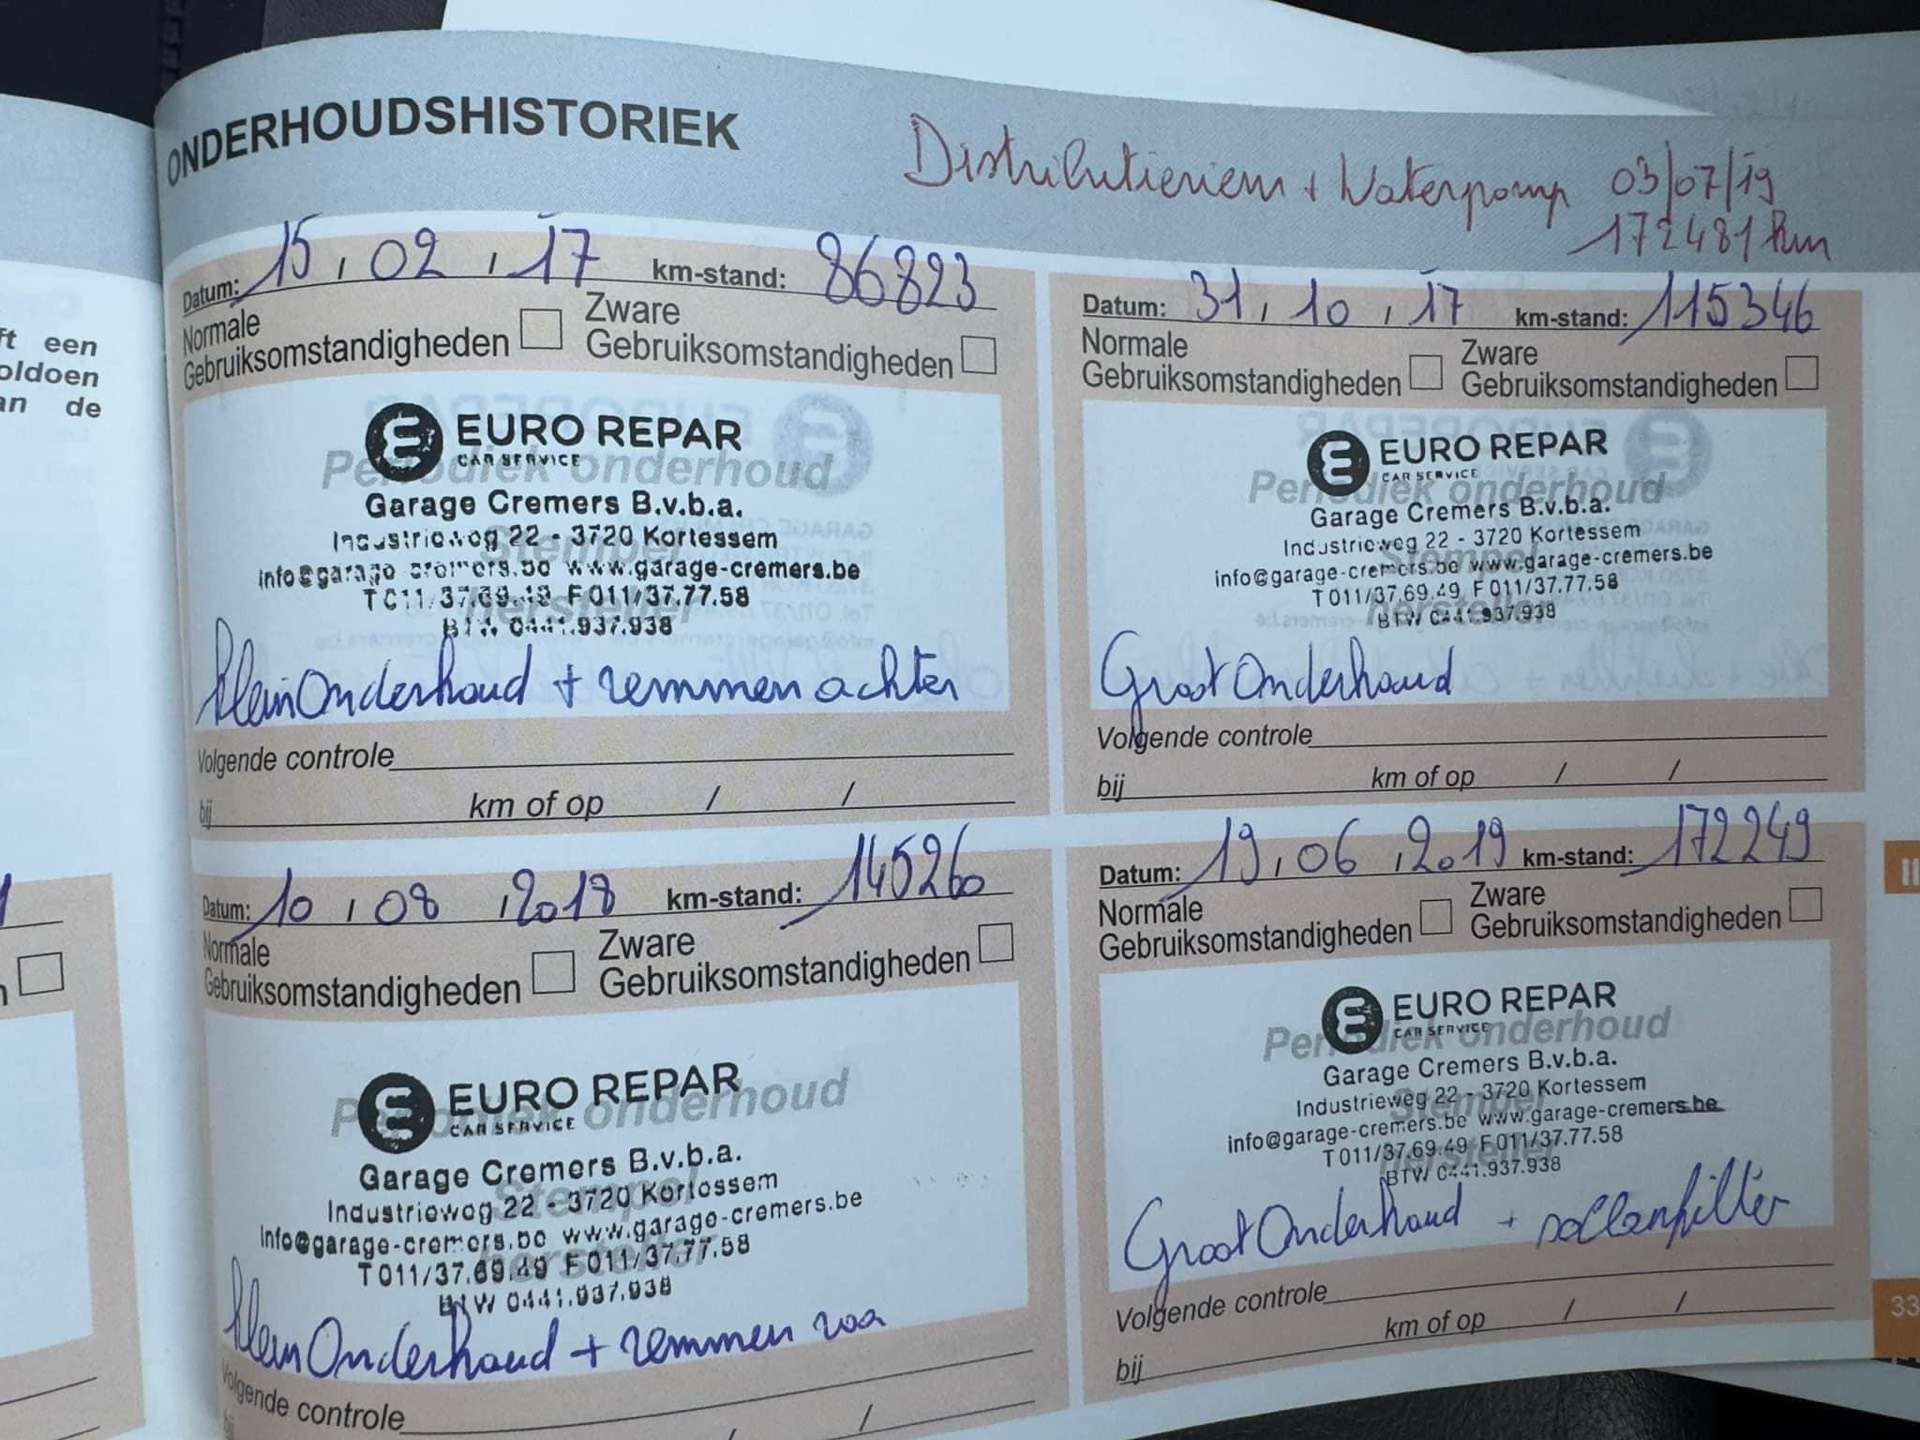 ft een
oldoen
an de
ONDERHOUDSHISTORIEK
Distributieriem + Waterpomp 03/07/19
172481 km
Datum: 15, 02, 17 km-stand: 86823
Normale
Gebruiksomstandigheden
Zware
Gebruiksomstandigheden
Periodiek onderhoud
Stempel
hersteller
EURO REPAR
CAR SERVICE
Garage Cremers B.v.b.a.
Industrieweg 22 - 3720 Kortessem
info@garage-cremers.be www.garage-cremers.be
T 011/37.69.49 F 011/37.77.58
BTW 0441.937.938
klein Onderhoud + remmen achter
Volgende controle
bij km of op / /
Datum: 31, 10, 17 km-stand: 115346
Normale
Gebruiksomstandigheden
Zware
Gebruiksomstandigheden
Periodiek onderhoud
Stempel
hersteller
EURO REPAR
CAR SERVICE
Garage Cremers B.v.b.a.
Industrieweg 22 - 3720 Kortessem
info@garage-cremers.be www.garage-cremers.be
T 011/37.69.49 F 011/37.77.58
BTW 0441.937.938
Groot Onderhoud
Volgende controle
bij km of op / /
Datum: 10, 08, 2018 km-stand: 145260
Normale
Gebruiksomstandigheden
Zware
Gebruiksomstandigheden
Periodiek onderhoud
Stempel
hersteller
EURO REPAR
CAR SERVICE
Garage Cremers B.v.b.a.
Industrieweg 22 - 3720 Kortessem
info@garage-cremers.be www.garage-cremers.be
T 011/37.69.49 F 011/37.77.58
BTW 0441.937.938
klein Onderhoud + remmen voa
Volgende controle
bij / /
Datum: 19, 06, 2019 km-stand: 172249
Normale
Gebruiksomstandigheden
Zware
Gebruiksomstandigheden
Periodiek onderhoud
Stempel
hersteller
EURO REPAR
CAR SERVICE
Garage Cremers B.v.b.a.
Industrieweg 22 - 3720 Kortessem
info@garage-cremers.be www.garage-cremers.be
T 011/37.69.49 F 011/37.77.58
BTW 0441.937.938
Groot Onderhoud + pollenfilter
Volgende controle
bij km of op / /
II
33